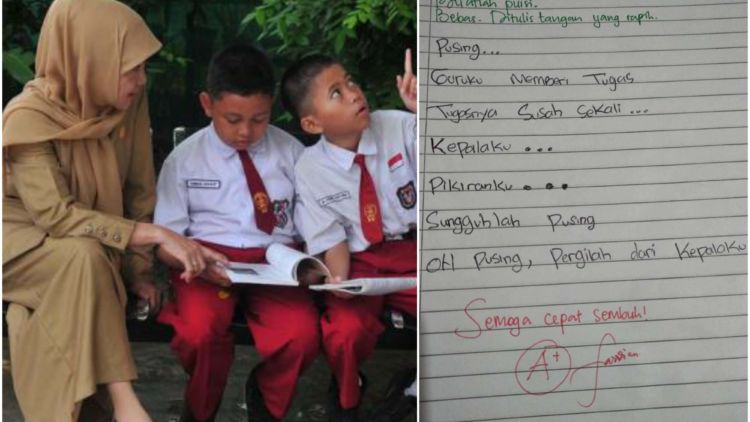 Buatlah puisi.
Bebas. Ditulis tangan yang rapih.
Pusing...
Guruku Memberi Tugas
Tugasnya Susah Sekali...
Kepalaku ...
Pikiranku ...
Sungguhlah Pusing
OH Pusing, Pergilah dari Kepalaku
Semoga cepat sembuh!
A+